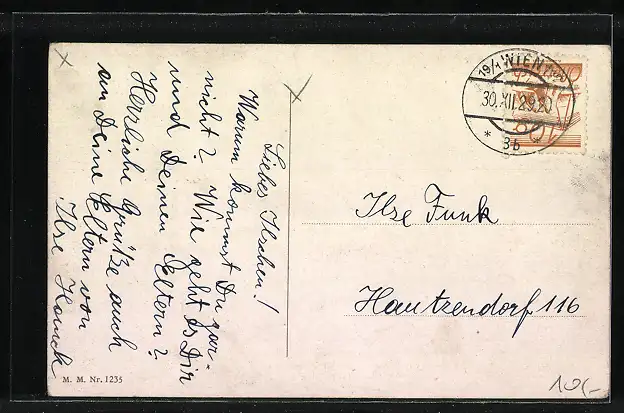 Liebes Ilschen!
Warum kommst Du gar-
nicht? Wie geht es Dir
und Deinen Eltern?
Herzliche Grütze auch
an Deine Eltern von
Ilse Hauck
M. M. Nr. 1235
19/1 WIEN
30.XII.29.20
* 3b *
Ilse Funk
Hautzendorf 116